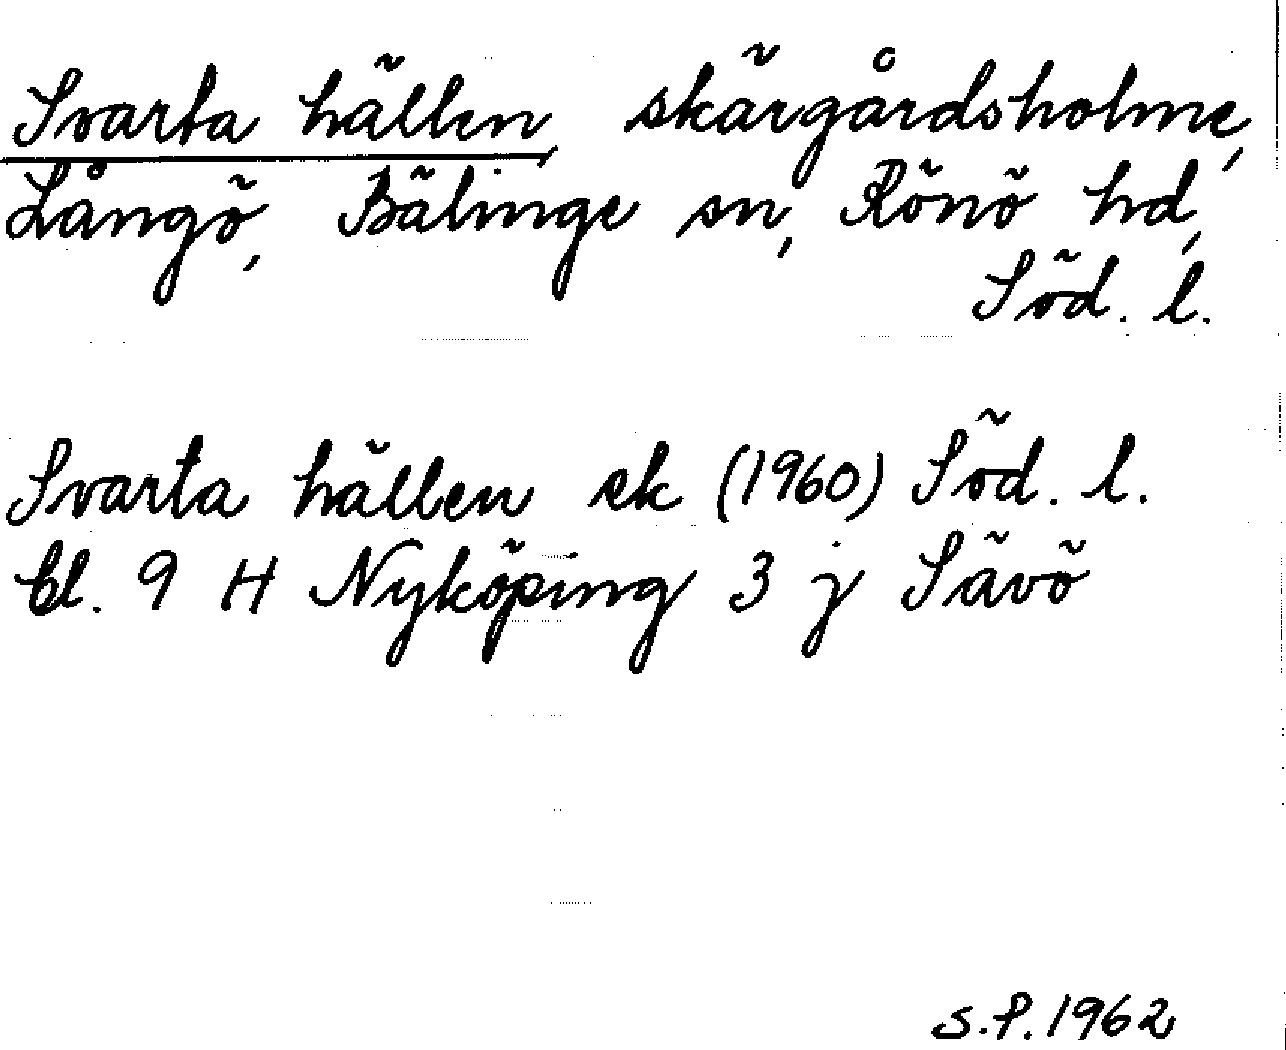 Svarta hällen, skärgårdsholme,
Långö, Bälinge sn, Rönö hd,
Söd. l.
Svarta hällen ek (1960) Söd. l.
bl. 9 H Nyköping 3 j Sävö
S.P. 1962